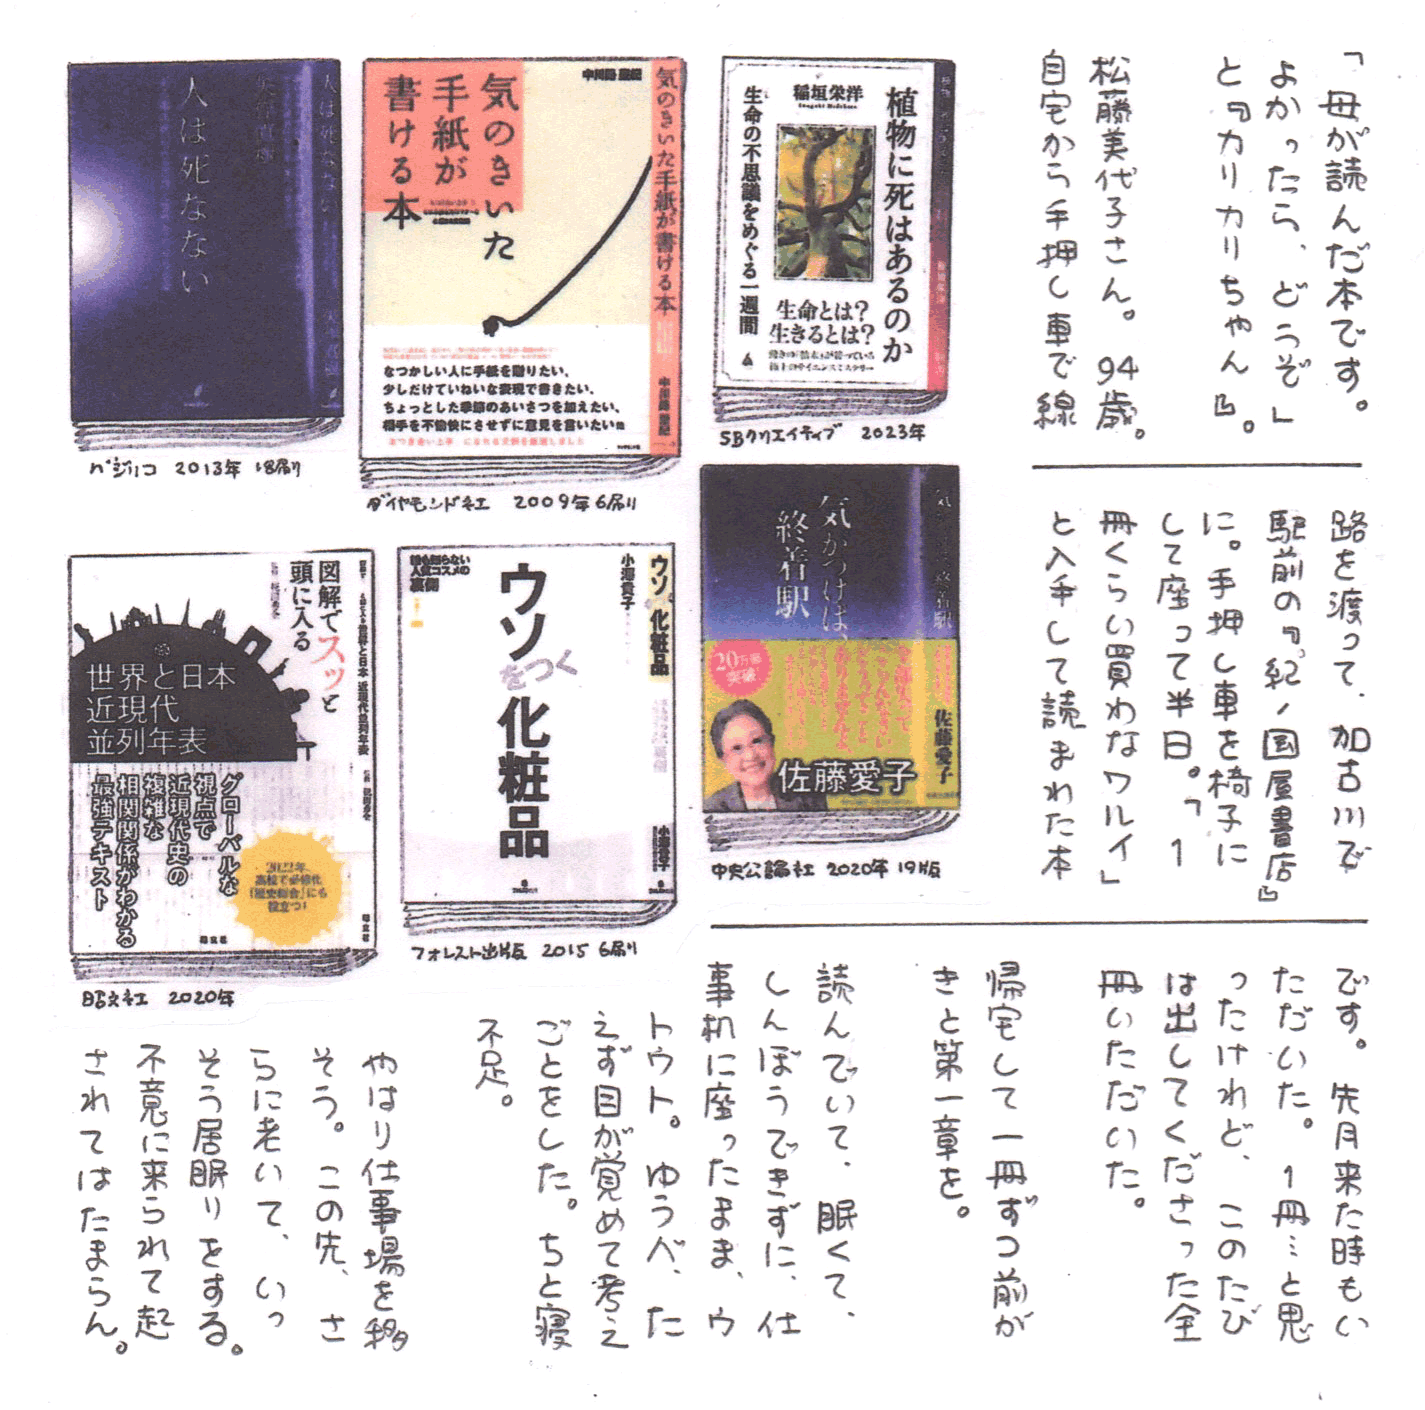 「母が読んだ本です。
よかったら、どうぞ」
と『カリカリちゃん』。
松藤美代子さん。94歳。
自宅から手押し車で線
路を渡って、加古川で
駅前の『紀ノ国屋書店』
に。手押し車を椅子に
して座って半日。「1
冊くらい買わなワルイ」
と入手して読まれた本
です。先月来た時もい
ただいた。1冊…と思
ったけれど、このたび
は出してくださった全
冊いただいた。
帰宅して一冊ずつ前が
きと第一章を。
読んでいて、眠くて、
しんぼうできずに、仕
事机に座ったまま、ウ
トウト。ゆうべ、た
えず目が覚めて考え
ごとをした。ちと寝
不足。
やはり仕事場を移
そう。この先、さ
らに老いて、いっ
そう居眠りをする。
不意に来られて起
されてはたまらん。
植物に死はあるのか
稲垣栄洋
生命の不思議をめぐる一週間
生命とは?
生きるとは?
SBクリエイティブ 2023年
気のきいた手紙が書ける本
気のきいた
手紙が
書ける本
なつかしい人に手紙を贈りたい、
少しだけていねいな表現で書きたい、
ちょっとした季節のあいさつを加えたい、
相手を不愉快にさせずに意見を言いたい
ダイヤモンド社 2009年6刷り
人は死なない
人は死なない
バジリコ 2013年 18刷り
気がつけば、
終着駅
20万部
突破
佐藤愛子
佐藤愛子
中央公論社 2020年 19版
ウソ 化粧品
小澤貴子
誰も知らない
人気コスメの
裏側
ウソ
をつく
化粧品
フォレスト出版 2015 6刷り
図解でスッと
頭に入る
世界と日本
近現代
並列年表
世界と日本 近現代並列年表
グローバルな
視点で
近現代史の
複雑な
相関関係がわかる
最強テキスト
2022年
高校で必修化
「歴史総合」にも
役立つ!
昭文社
昭文社 2020年